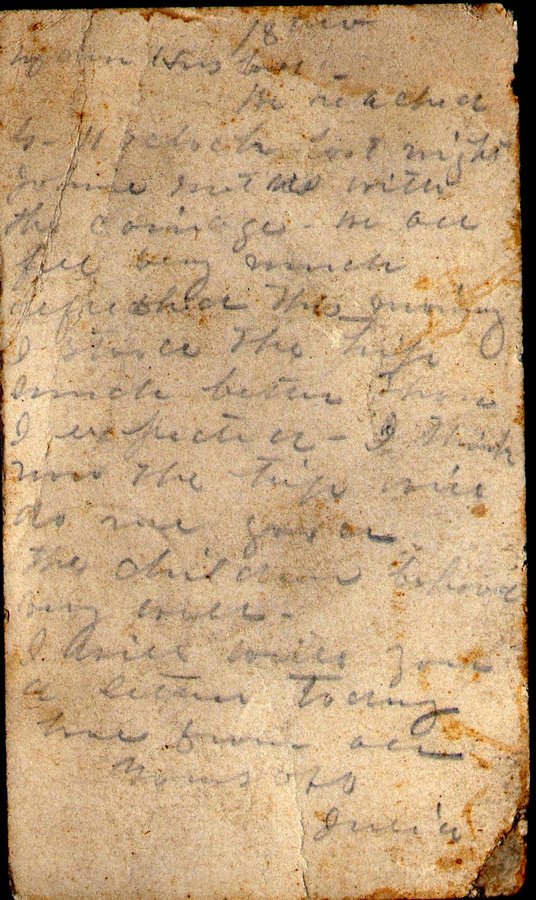 18
My own Husband
We reached
last night
met us with
the carriage - We all
feel very much
refreshed this morning
I stood the trip
much better than
I expected - I think
now the trip will
do me good
the children behaved
very well -
I will write you
a letter today
love from all
Yours
Julia